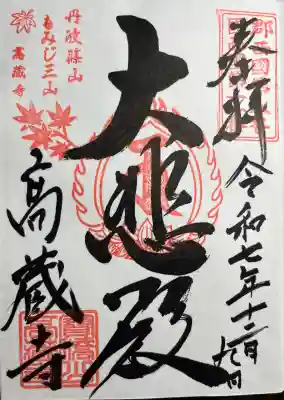 奉拝
令和七年十二月九日
大悲殿
丹波篠山
もみじ三山
高蔵寺
高蔵寺